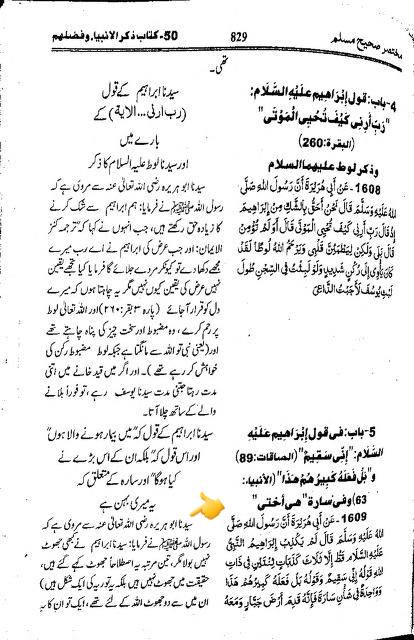 50- کتاب ذکر الانبیاء وفضلھم
829
مختصر صحیح مسلم
تھی۔
4-باب: قول إبراهيم عليه السلام:
"رَبِّ أَرِنِي كَيْفَ تُحْيِي الْمَوْتَى"
(البقرة:260)
وذكر لوط عليهما السلام
1608- عَنْ أَبِي هُرَيْرَةَ أَنَّ رَسُولَ اللَّهِ صَلَّى
اللَّهُ عَلَيْهِ وَسَلَّمَ قَالَ نَحْنُ أَحَقُّ بِالشَّكِّ مِنْ إِبْرَاهِيمَ
إِذْ قَالَ رَبِّ أَرِنِي كَيْفَ تُحْيِي الْمَوْتَى قَالَ أَوَلَمْ تُؤْمِنْ
قَالَ بَلَى وَلَكِنْ لِيَطْمَئِنَّ قَلْبِي وَيَرْحَمُ اللَّهُ لُوطًا لَقَدْ
كَانَ يَأْوِي إِلَى رُكْنٍ شَدِيدٍ وَلَوْ لَبِثْتُ فِي السِّجْنِ طُولَ
لَبْثِ يُوسُفَ لَأَجَبْتُ الدَّاعِيَ
سیدنا ابراہیم کے قول
(رب ارنی ... الایة) کے
بارے میں
اور سیدنا لوط علیہ السلام کا ذکر
سیدنا ابو ہریرہ رضی اللہ تعالیٰ عنہ سے مروی ہے کہ
رسول اللہ ﷺ نے فرمایا: ہم ابراہیم سے شک کرنے
کا زیادہ حق رکھتے ہیں، جب انہوں نے کہا کہ ترجمہ کنز
الایمان: اور جب عرض کی ابراہیم نے اے رب میرے
مجھے دکھا دے تو کیونکر مردے جلائے گا فرمایا کیا تجھے یقین
نہیں عرض کی یقین کیوں نہیں مگر یہ چاہتا ہوں کہ میرے
دل کو قرار آ جائے (پارہ ۳ بقر:۲۶۰) اور اللہ تعالیٰ لوط
پر رحم کرے، وہ مضبوط اور سخت چیز کی پناہ چاہتے تھے
اور (یعنی نبی تو اللہ سے مانگتا ہے جبکہ لوط مضبوط رکن کی
خواہش کر رہے تھے)۔ اور اگر میں قید خانے میں اتنی
مدت رہتا جتنی مدت سیدنا یوسف رہے، تو فوراً بلانے
والے کے ساتھ چلا آتا۔
5-باب: في قول إبراهيم عليه
السلام: "إِنِّي سَقِيمٌ" (الصافات:89)
و"بَلْ فَعَلَهُ كَبِيرُهُمْ هَذَا" (الأنبياء:
63) وفي سارة "هي أختي"
1609- عَنْ أَبِي هُرَيْرَةَ أَنَّ رَسُولَ اللَّهِ صَلَّى
اللَّهُ عَلَيْهِ وَسَلَّمَ قَالَ لَمْ يَكْذِبْ إِبْرَاهِيمُ النَّبِيُّ
عَلَيْهِ السَّلَام قَطُّ إِلَّا ثَلَاثَ كَذَبَاتٍ ثِنْتَيْنِ فِي ذَاتِ
اللَّهِ قَوْلُهُ إِنِّي سَقِيمٌ وَقَوْلُهُ بَلْ فَعَلَهُ كَبِيرُهُمْ هَذَا
وَوَاحِدَةٌ فِي شَأْنِ سَارَةَ فَإِنَّهُ قَدِمَ أَرْضَ جَبَّارٍ وَمَعَهُ
سیدنا ابراہیم کے قول کہ "میں بیمار ہونے والا ہوں"
اور اس قول کہ "بلکہ ان کے اس بڑے نے
کیا ہوگا" اور سارہ کے متعلق کہ
یہ میری بہن ہے
سیدنا ابو ہریرہ رضی اللہ تعالیٰ عنہ سے مروی ہے کہ
رسول اللہ ﷺ نے فرمایا: سیدنا ابراہیم نے کبھی جھوٹ
نہیں بولا مگر، تین مرتبہ یہ اصطلاحاً جھوٹ کہے گئے ہیں،
حقیقت میں جھوٹ نہیں ہیں بلکہ یہ توریہ کی ایک شکل ہیں)
ان میں سے دو جھوٹ اللہ کے لئے تھے، ایک تو ان کا یہ